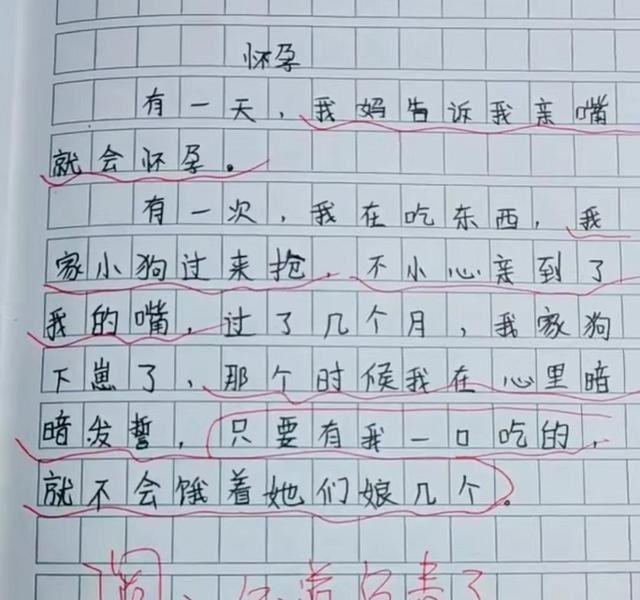 怀孕
有一天，我妈告诉我亲嘴
就会怀孕。
有一次，我在吃东西，我
家小狗过来抢，不小心亲到了
我的嘴，过了几个月，我家狗
下崽了，那个时候我在心里暗
暗发誓，只要有我一口吃的，
就不会饿着她们娘几个。